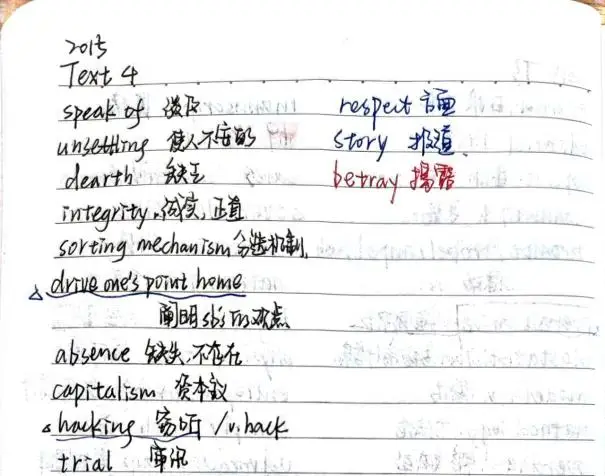 2015
Text 4
speak of 谈及 respect 方面
unsettling 使人不安的 story 报道
dearth 缺乏 betray 揭露
integrity. 诚实, 正直
sorting mechanism 分选机制
△ drive one's point home
阐明sb's的观点
absence 缺失, 不存在
capitalism 资本议
△ hacking 窃听 / v. hack
trial 审讯